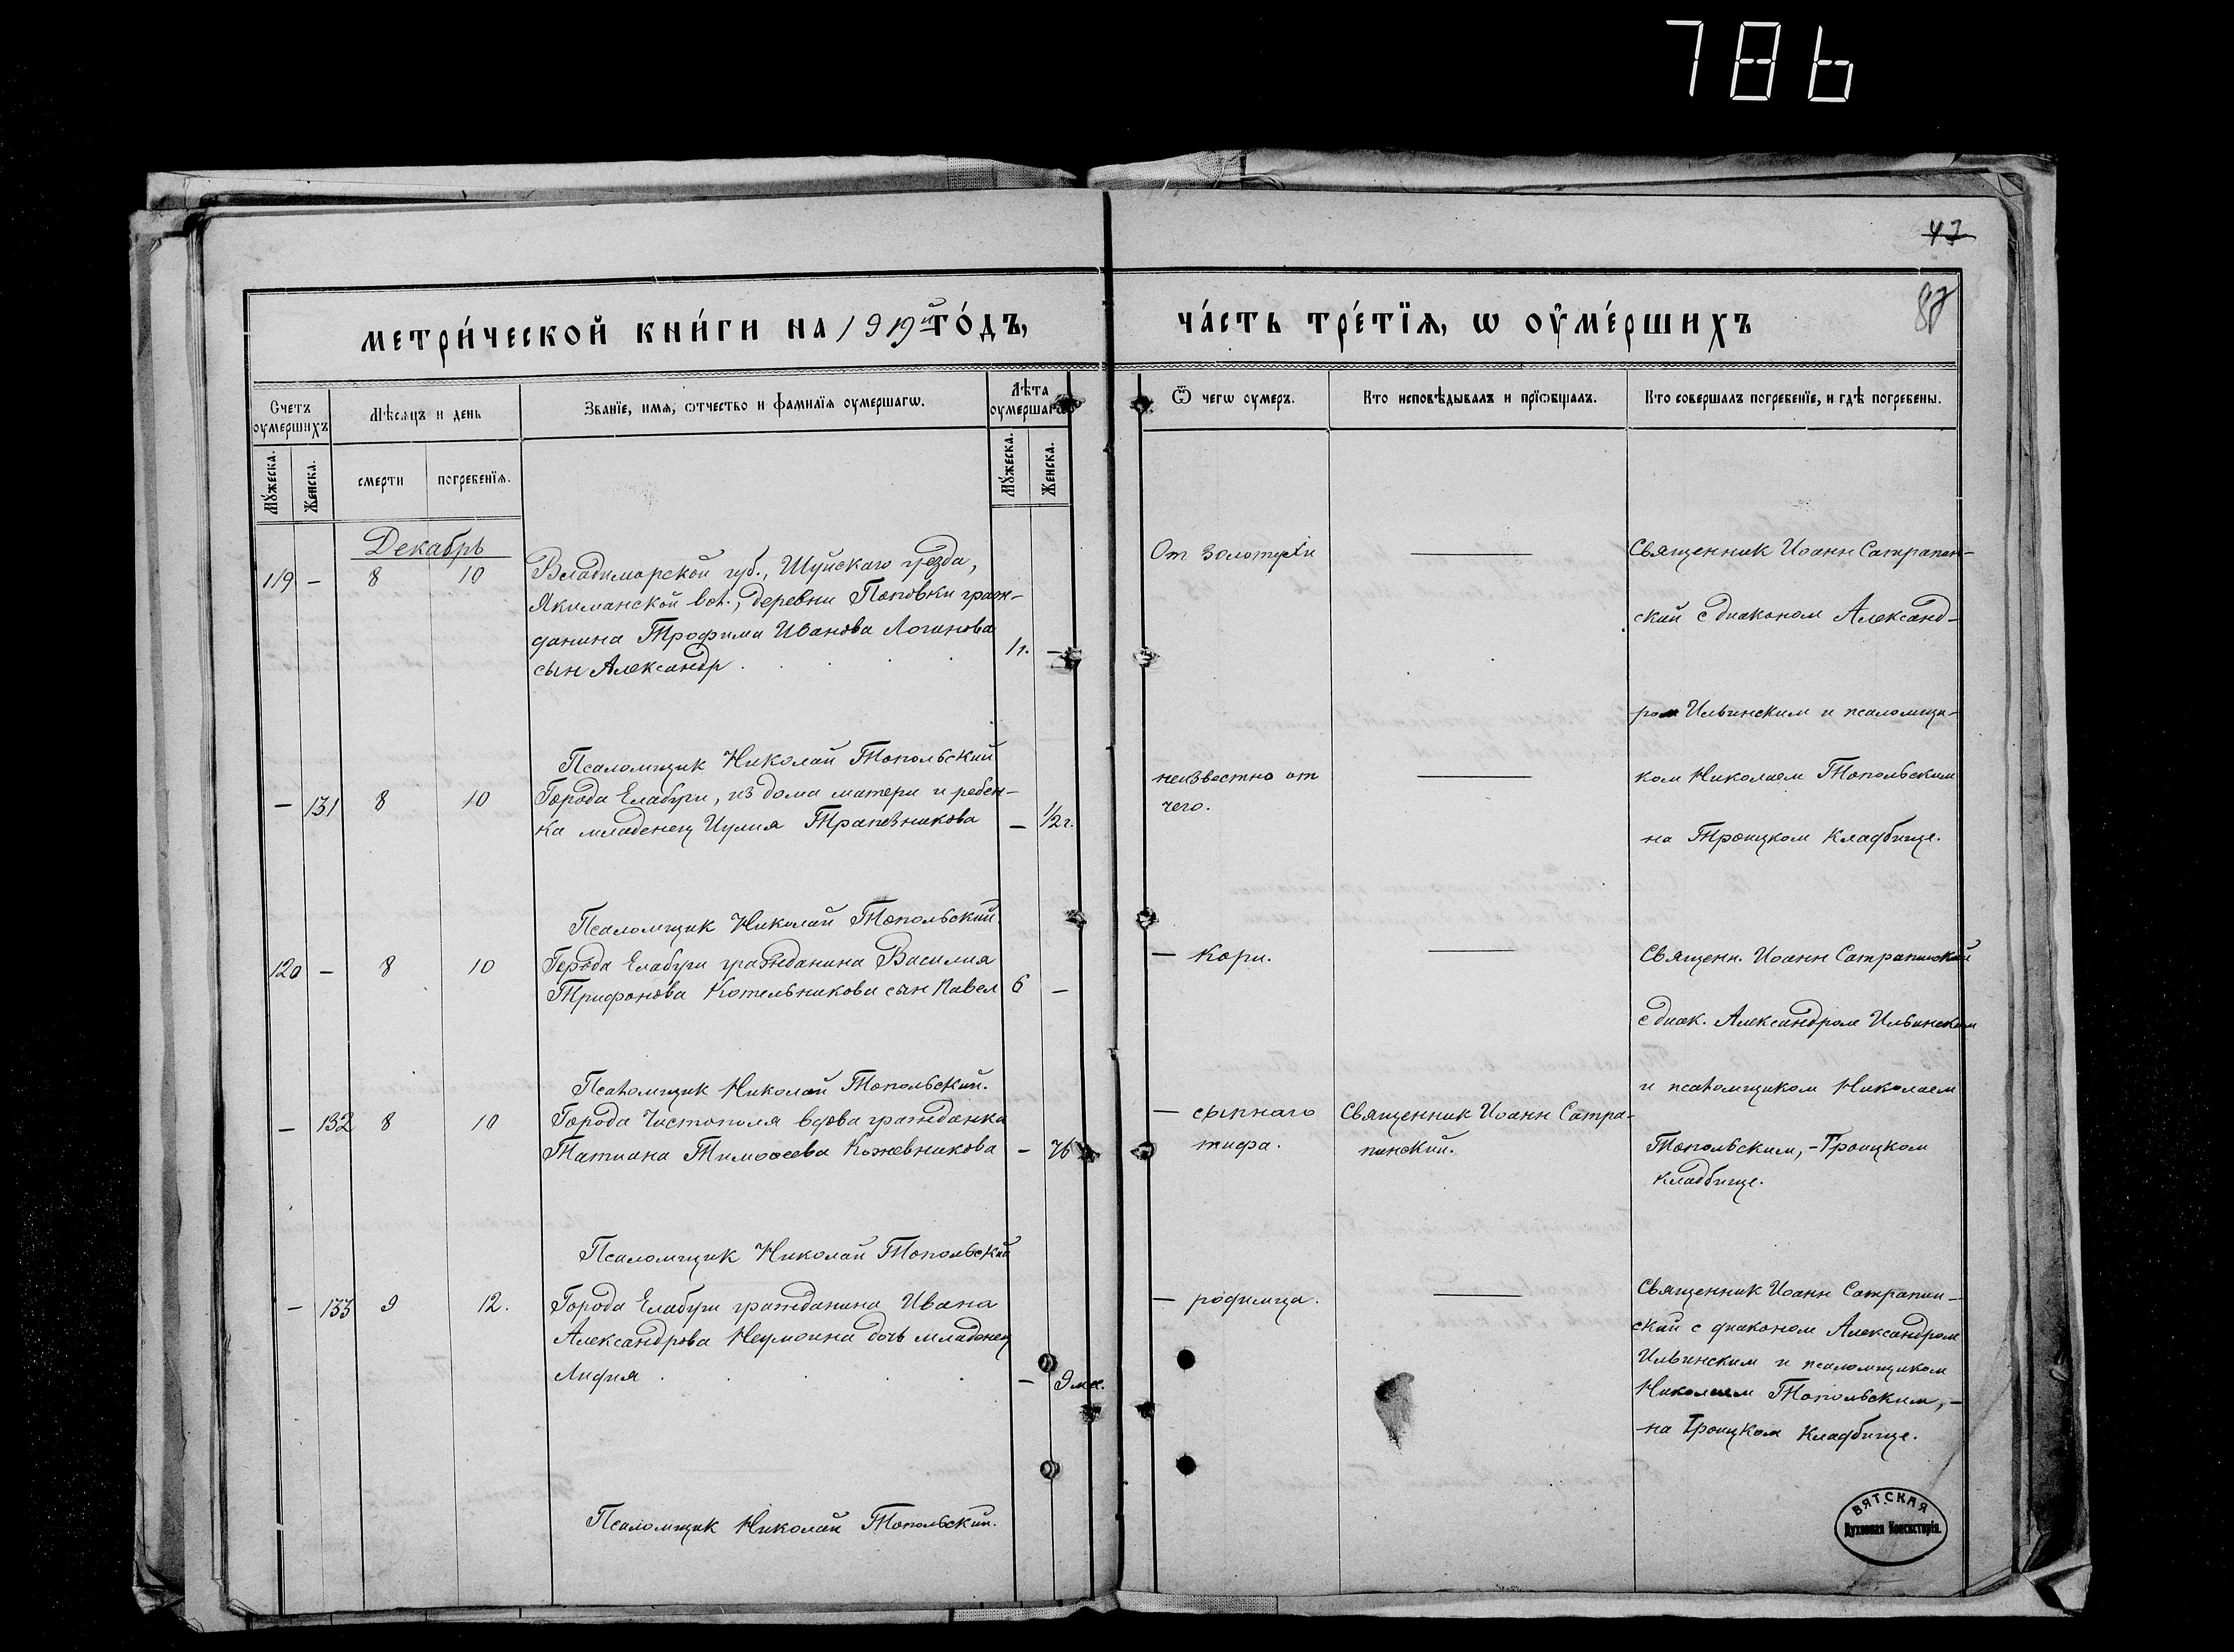 786
47
87
метри́ческой кни́ги на 1919й го́дъ,
ча́сть тре́тїѧ, ѡ оу҆ме́ршихъ
Счетъ оумершихъ
Мѣсяцъ и день
Званїе, имѧ, ѿчество и фамилїѧ оумершагѡ.
Лѣта оумершагѡ
Ѿ чегѡ оумеръ.
Кто исповѣдывалъ и прїѡбщалъ.
Кто совершалъ погребенїе, и гдѣ погребены.
Мꙋжеска.
Женска.
смерти
погребенїѧ.
Мꙋжеска.
Женска.
Декабрь
119 — 8 10 Владимирской губ., Шуйскаго уезда,
Якиманской вол., деревни Поповки граж-
данина Трофима Иванова Логинова
сын Александр . . . . 1 г. —
От золотухи
Священник Иоанн Сатрапин-
ский с диаконом Александ-
ром Ильинским и псаломщи-
ком Николаем Топольским
на Троицком кладбище.
Псаломщик Николай Топольский
— 131 8 10 Города Елабуги, из дома матери и ребен-
ка младенец Иулия Трапезникова — 1/2 г.
неизвестно от
чего.
Псаломщик Николай Топольский.
120 — 8 10 Города Елабуги гражданина Василия
Трифонова Котельникова сын Павел 6 —
— кори.
Священн. Иоанн Сатрапинский
с диак. Александром Ильинским
и псаломщиком Николаем
Топольским, – Троицком
кладбище.
Псаломщик Николай Топольский.
— 132 8 10 Города Чистополя вдова гражданка
Татиана Тимофеева Кожевникова — 76
— сыпнаго
тифа.
Священник Иоанн Сатра-
пинский.
Псаломщик Николай Топольский
— 133 9 12. Города Елабуги гражданина Ивана
Александрова Неумоина дочь младенец
Лидия . . . . — 9 мес.
— родимца.
Священник Иоанн Сатрапин-
ский с диаконом Александром
Ильинским и псаломщиком
Николаем Топольским, –
на Троицком кладбище.
Псаломщик Николай Топольский.
ВЯТСКАЯ
Духовная Консисторія.